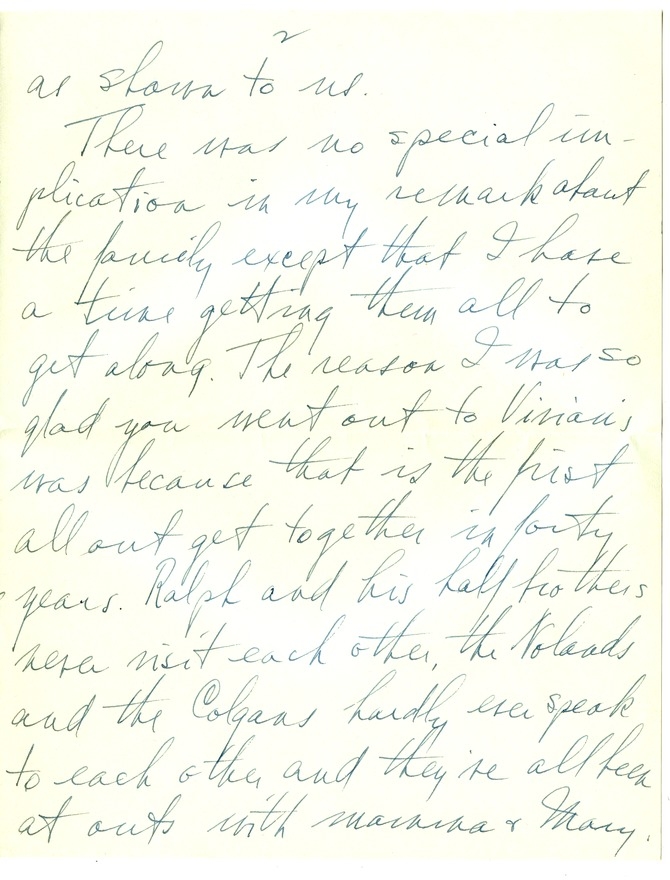 2
as shown to us.
There was no special im-
plication in my remark about
the family except that I have
a time getting them all to
get along. The reason I was so
glad you went out to Vivian's
was because that is the first
all out get together in forty
years. Ralph and his half brothers
never visit each other, the Nolands
and the Colgans hardly ever speak
to each other and they've all been
at outs with mamma & Mary.